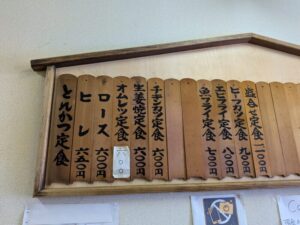 盛合せ定食 一二〇〇円
ヒーカツ定食 九〇〇円
エビフライ定食 一〇〇〇円
魚フライ定食 七〇〇円
チキンカツ定食 六〇〇円
生姜焼定食 六〇〇円
オムレツ定食 六〇〇円
ロース 六〇〇円
ヒレ 六五〇円
とんかつ定食